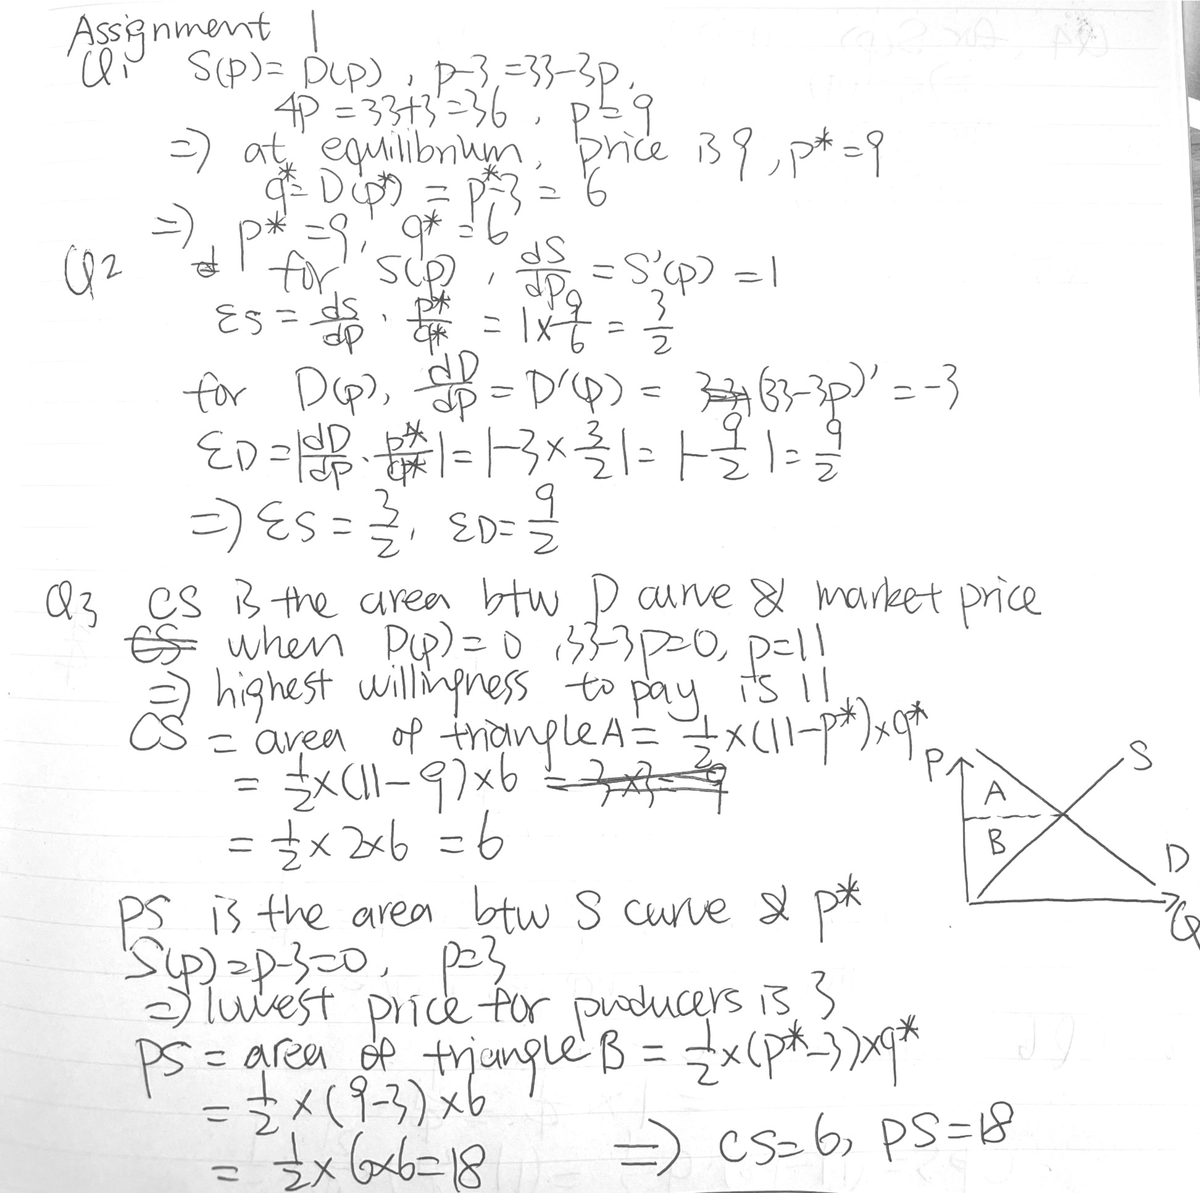 Assignment 1
Q1 S(p)= D(p), p-3=33-3p,
4p=33+3=36, p=9
=) at equilibrium, price is 9, p*=9
q*= D(p*) = p*-3 = 6
=) p*=9, q*=6
Q2 for S(p), dS/dp = S'(p) = 1
εS = ds/dp · p*/q* = 1×9/6 = 3/2
for D(p), dD/dp = D'(p) = (33-3p)' = -3
εD=|dD/dp · p*/q*|=|-3×3/2|=|-9/2|=9/2
=) εS=3/2, εD=9/2
Q3 CS is the area btw D curve & market price
CS when D(p)=0, 33-3p=0, p=11
=) highest willingness to pay is 11
CS = area of triangle A= 1/2×(11-p*)×q*
= 1/2×(11-9)×6 = 3×3=9
= 1/2×2×6 = 6
P
S
A
B
D
Q
PS is the area btw S curve & p*
S(p)=p-3=0, p=3
=) lowest price for producers is 3
PS = area of triangle B = 1/2×(p*-3)×q*
= 1/2×(9-3)×6
= 1/2×6×6=18 =) CS=6, PS=18